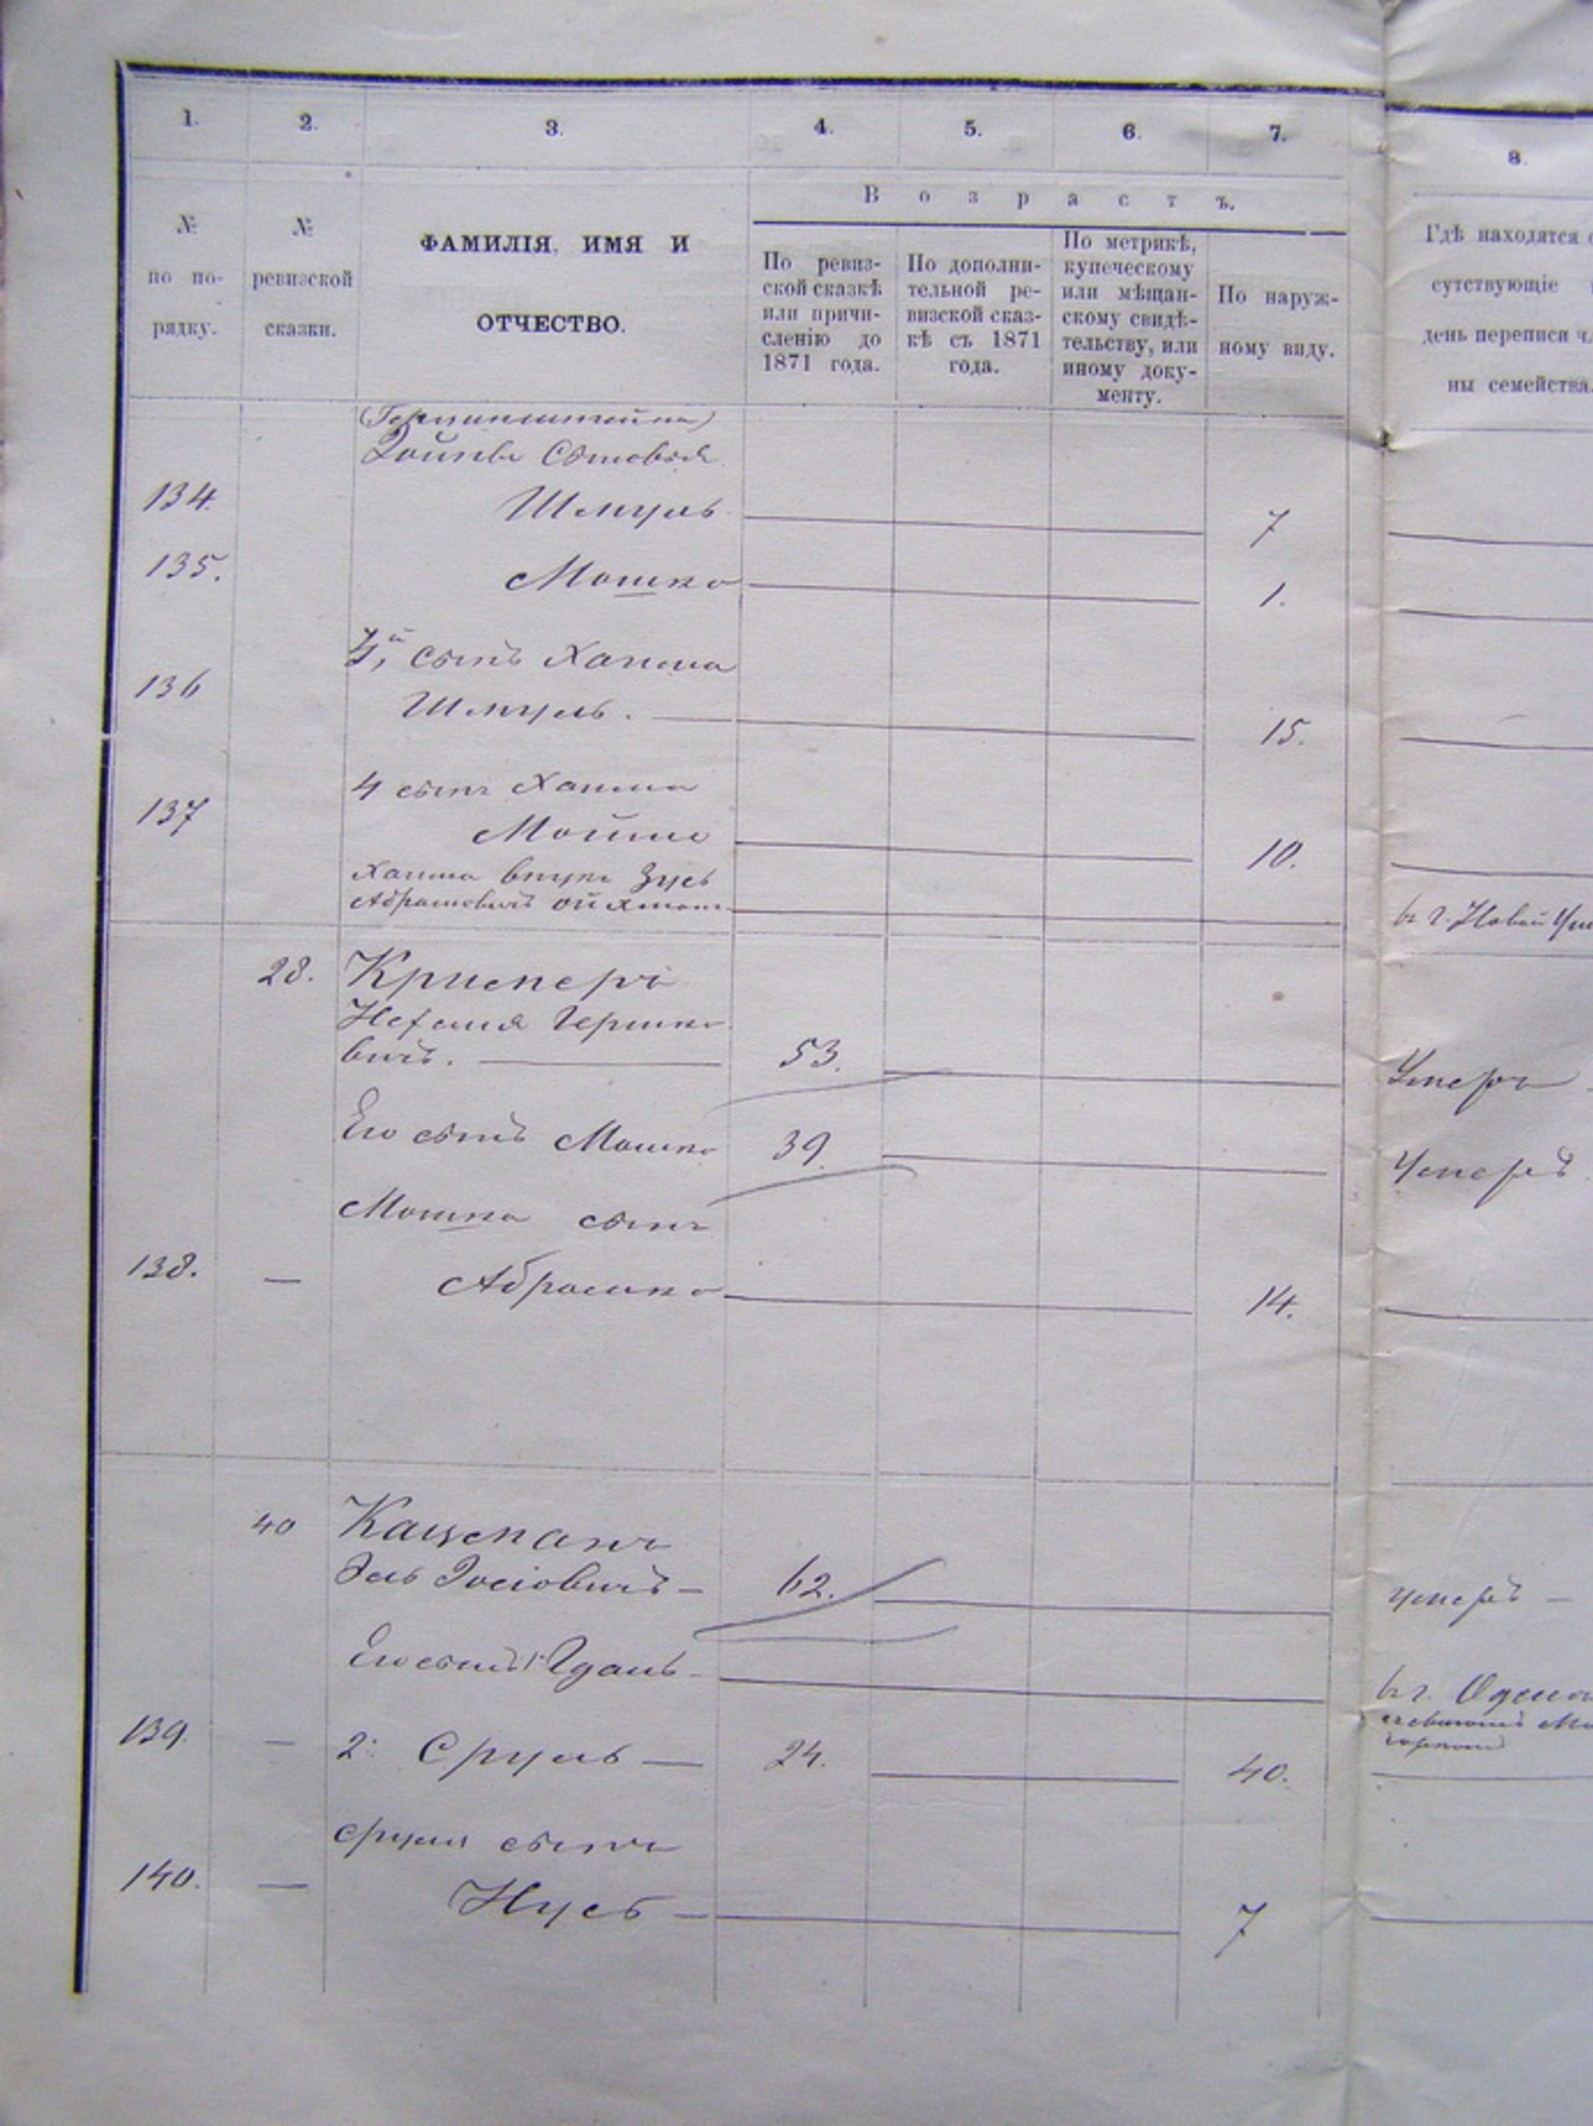 1. 2. 3. 4. 5. 6. 7. 8.
В о з р а с т ъ.
№ по по-рядку.
№ ревизской сказки.
ФАМИЛІЯ, ИМЯ И
ОТЧЕСТВО.
По ревиз-
ской сказкѣ
или причи-
сленію до
1871 года.
По дополни-
тельной ре-
визской сказ-
кѣ съ 1871
года.
По метрикѣ,
купеческому
или мѣщан-
скому свидѣ-
тельству, или
иному доку-
менту.
По наруж-
ному виду.
Гдѣ находятся
сутствующіе
день переписи ч
ны семейства
сыновья
134. Шмуль 7
135. Мошко 1.
сынъ Хаима
136 Шмуль. 15.
4 сынъ Хаима
137 Мойше 10.
Хаима внукъ Зусь
Абрамовичъ
въ г. Новой
28. Крисперъ
Нефталя Гершко
вичъ. 53. Умеръ
Его сынъ Мошко 39. Умеръ
Мошка сынъ
138. — Абрамко 14.
40 Кацманъ
Эль Іосіовичъ — 62. умеръ —
Его сынъ 1.
въ г. Одессѣ
139. — 2: Сруль — 24. 40.
Сруля сынъ
140. — Нусъ — 7